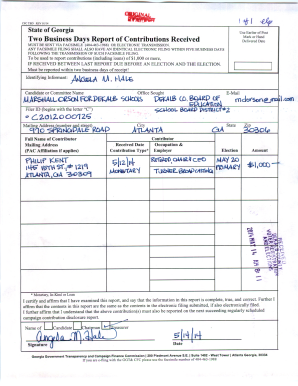 ORIGINAL
1 of 1
State of Georgia
Use Earlier of Post Mark or Hand Delivered Date
Two Business Days Report of Contributions Received
MUST BE SENT VIA FACSIMILE (404-463-1988) OR ELECTRONIC TRANSMISSION.
ANY FACSIMILE FILING SHALL ALSO HAVE AN IDENTICAL ELECTRONIC FILING WITHIN FIVE BUSINESS DAYS
FOLLOWING THE TRANSMISSION OF SUCH FACSIMILE FILING.
To be used to report contributions (including loans) of $1,000 or more.
IF RECEIVED BETWEEN LAST REPORT DUE BEFORE AN ELECTION AND THE ELECTION.
Must be reported within two business days of receipt.
Identifying Informant: ANGELA M. HALE
Candidate or Committee Name Office Sought E-Mail
MARSHALL ORSON FOR DEKALB SCHOOLS DEKALB CO. BOARD OF EDUCATION SCHOOL BOARD DISTRICT #2 mdorson@mail.com
Filer ID (Begins with the letter "C")
C2012000725
Mailing Address (number and street) City State Zip
990 SPRINGDALE ROAD ATLANTA GA 30306
Full Name of Contributor Mailing Address (PAC Affiliation if applies) Received Date Contribution Type* Contributor Occupation & Employer Election Amount
PHILIP KENT 5/12/14 RETIRED, CHAIR & CEO MAY 20 $1,000—
145 15TH ST, #1219 MONETARY TURNER BROADCASTING PRIMARY
ATLANTA, GA 30309
* Monetary, In Kind or Loan
I certify and affirm that I have examined this report, and say that the information in this report is complete, true, and correct. Further I affirm that the contents in this report are the same as the contents in the electronic filing submitted, if also electronically filed.
I further affirm that I understand that the above contribution(s) must also be reported on the next succeeding regularly scheduled campaign contribution disclosure report.
Name of Candidate Chairman Treasurer
Angela M. Hale 5/14/14
Signature Date
Georgia Government Transparency and Campaign Finance Commission | 200 Piedmont Avenue S.E. | Suite 1402 - West Tower | Atlanta, Georgia 30334